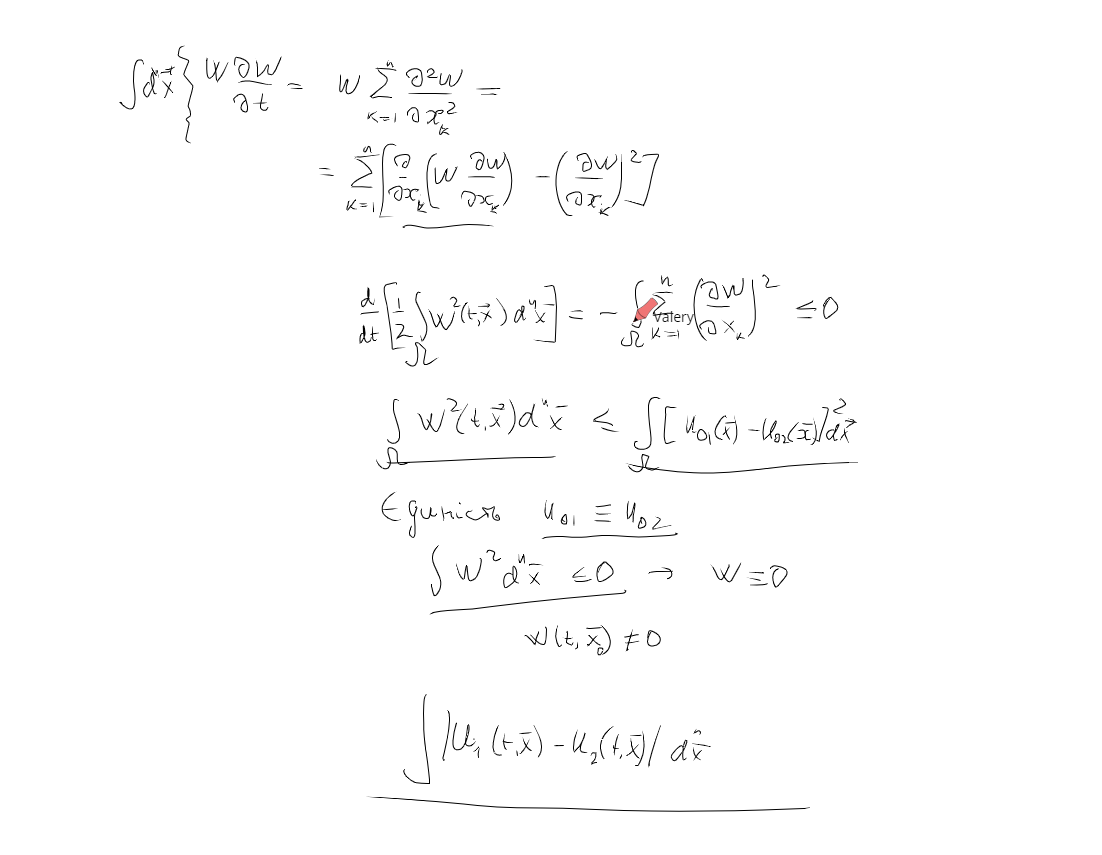 ∫dⁿx⃗ { W ∂W/∂t = W ∑_{k=1}^{n} ∂²W/∂x_k² =
= ∑_{k=1}^{n} [ ∂/∂x_k ( W ∂W/∂x_k ) - ( ∂W/∂x_k )² ]
d/dt [ 1/2 ∫_Ω W²(t,x⃗) dⁿx̄ ] = - ∫_Ω ∑_{k=1}^{n} ( ∂W/∂x_k )² ≤ 0
Valery
∫_Ω W²(t,x⃗) dⁿx̄ ≤ ∫_Ω [ u₀₁(x̄) - u₀₂(x̄) ]² dx⃗
Єдиність u₀₁ ≡ u₀₂
∫ W² dⁿx̄ ≤ 0 → W ≡ 0
W(t, x̄₀) ≠ 0
∫ |u₁(t,x̄) - u₂(t,x̄)| dⁿx̄